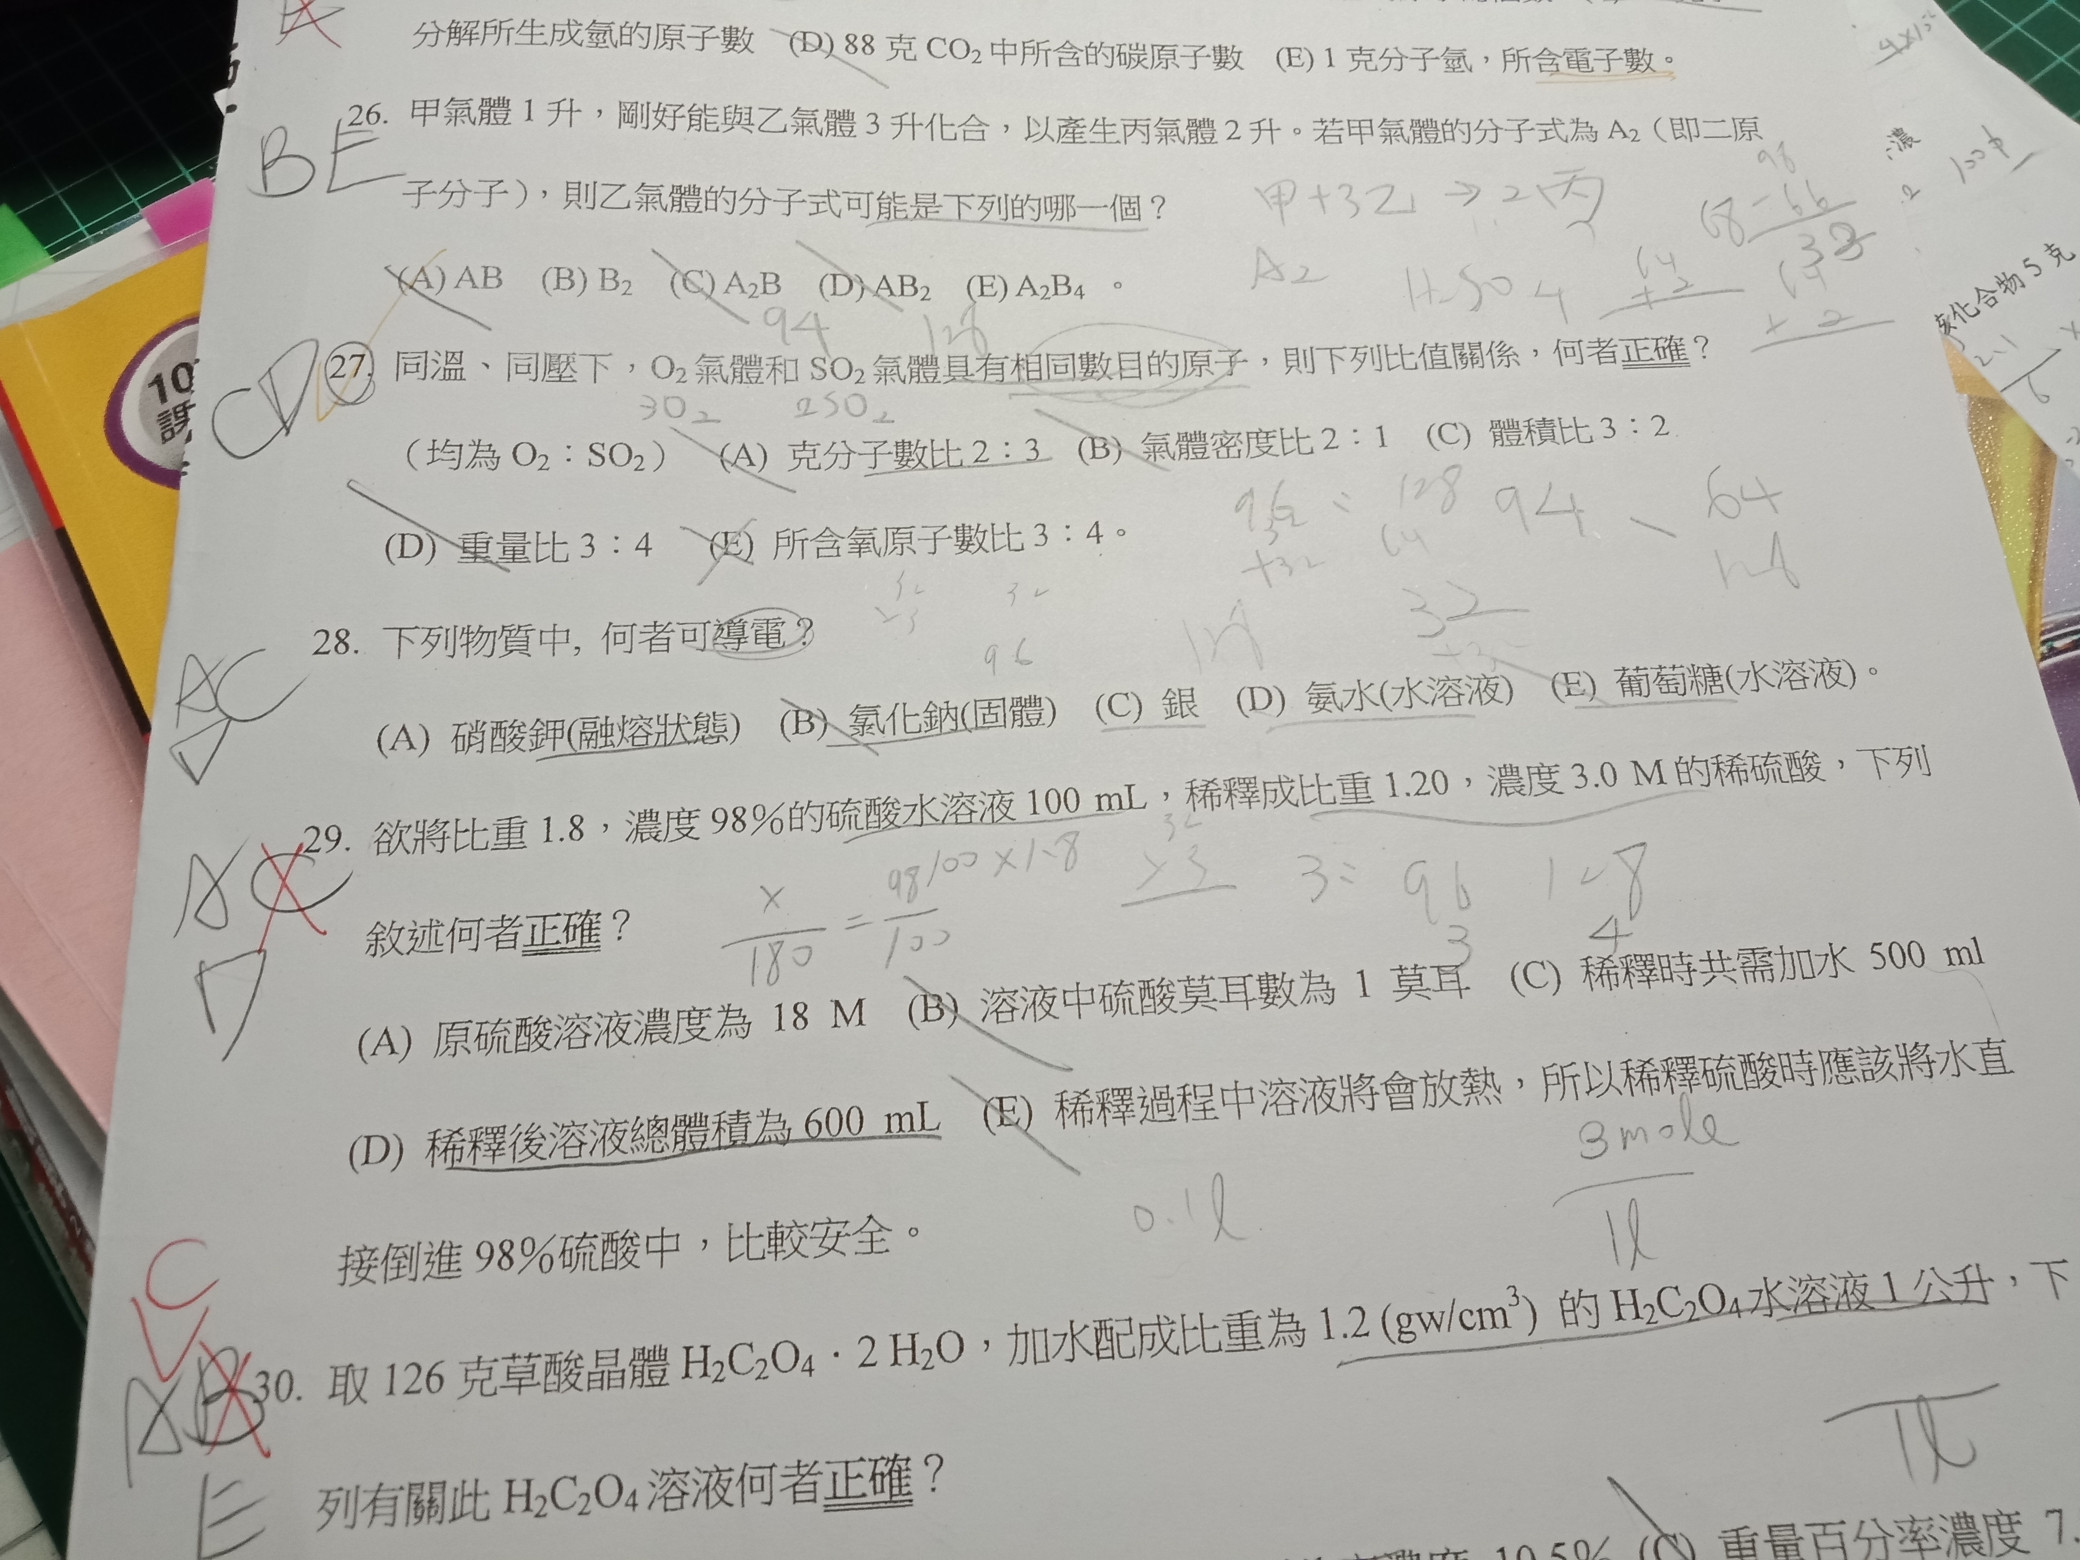 分解所生成氫的原子數 (D) 88 克 CO₂ 中所含的碳原子數 (E) 1 克分子氫，所含電子數。
26. 甲氣體 1 升，剛好能與乙氣體 3 升化合，以產生丙氣體 2 升。若甲氣體的分子式為 A₂（即二原
BE
子分子），則乙氣體的分子式可能是下列的哪一個？
甲+3乙→2丙
A₂
(A) AB (B) B₂ (C) A₂B (D) AB₂ (E) A₂B₄ 。
94 128
CD
27. 同溫、同壓下，O₂ 氣體和 SO₂ 氣體具有相同數目的原子，則下列比值關係，何者正確？
3O₂ 2SO₂
（均為 O₂：SO₂） (A) 克分子數比 2：3 (B) 氣體密度比 2：1 (C) 體積比 3：2
94 64
(D) 重量比 3：4 (E) 所含氧原子數比 3：4。
28. 下列物質中, 何者可導電？
96
AC
D
(A) 硝酸鉀(融熔狀態) (B) 氯化鈉(固體) (C) 銀 (D) 氨水(水溶液) (E) 葡萄糖(水溶液)。
29. 欲將比重 1.8，濃度 98%的硫酸水溶液 100 mL，稀釋成比重 1.20，濃度 3.0 M 的稀硫酸，下列
AC
D
敘述何者正確？
x/180 = 98/100
100×1.8
3: 96 128
3 4
(A) 原硫酸溶液濃度為 18 M (B) 溶液中硫酸莫耳數為 1 莫耳 (C) 稀釋時共需加水 500 ml
(D) 稀釋後溶液總體積為 600 mL (E) 稀釋過程中溶液將會放熱，所以稀釋硫酸時應該將水直
3mole
1l
0.1l
接倒進 98%硫酸中，比較安全。
C
AB
E
30. 取 126 克草酸晶體 H₂C₂O₄．2 H₂O，加水配成比重為 1.2 (gw/cm³) 的 H₂C₂O₄ 水溶液 1 公升，下
1l
列有關此 H₂C₂O₄ 溶液何者正確？
10.5% (C) 重量百分率濃度 7.
炭化合物 5 克
濃